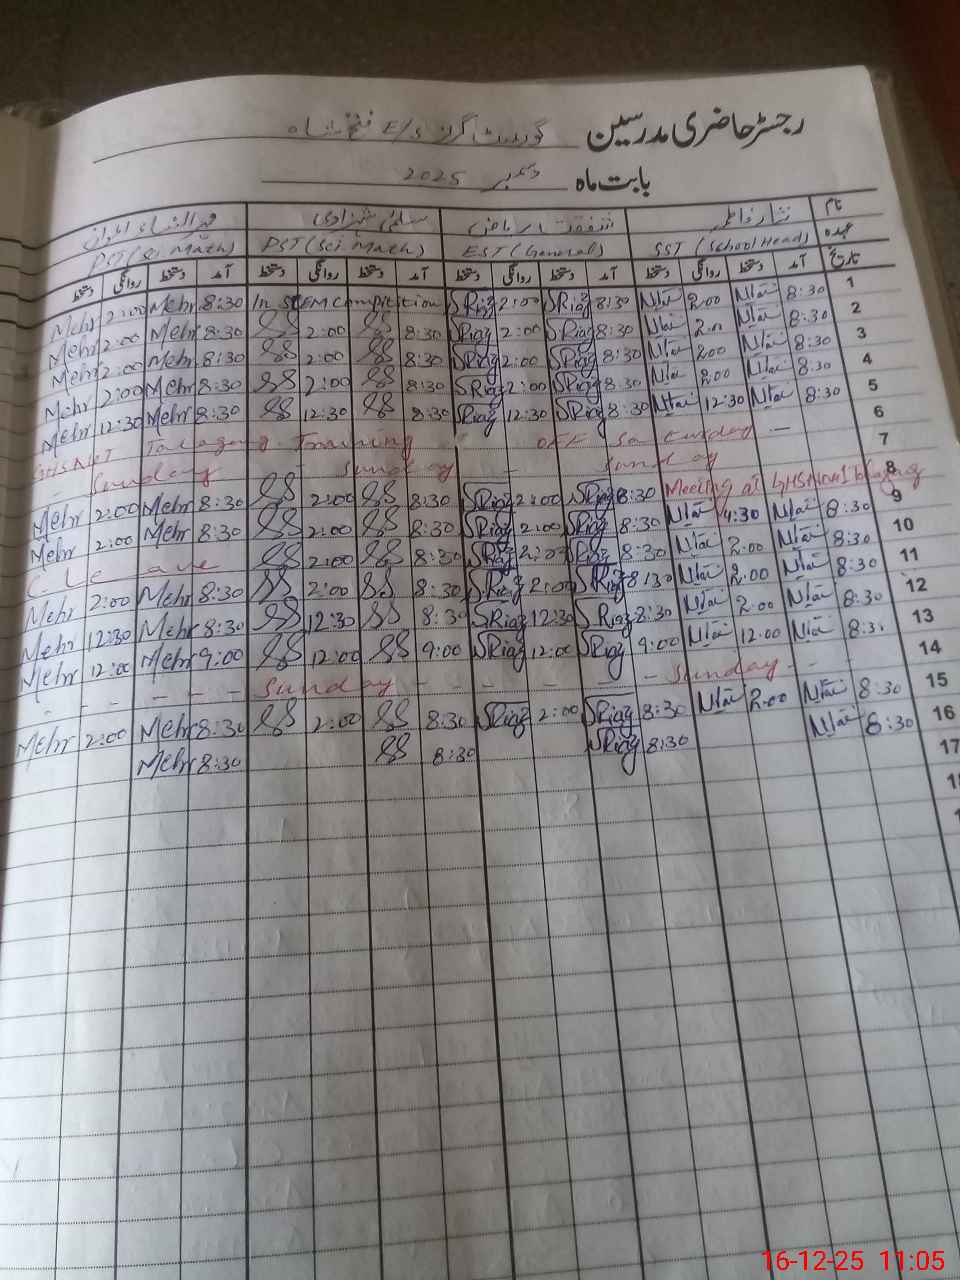 رجسٹر حاضری مدرسین گورنمنٹ گرلز E/S فتح شاہ
بابت ماہ دسمبر 2025
نام نثار فاطمہ شفقت ریاض سلمیٰ شہزادی مہرالنساء اعوان
عہدہ SST (School Head) EST (General) PST (Sci. Math) PST (Sci. Math)
تاریخ آمد دستخط روانگی دستخط آمد دستخط روانگی دستخط آمد دستخط روانگی دستخط آمد دستخط روانگی دستخط
Mehr 2:00 Mehr 8:30 In STEM Compitition SRiaz 2:00 SRiaz 8:30 Nisar 2:00 Nisar 8:30 1
Mehr 2:00 Mehr 8:30 SS 2:00 SS 8:30 SRiaz 2:00 SRiaz 8:30 Nisar 2:00 Nisar 8:30 2
Mehr 2:00 Mehr 8:30 SS 2:00 SS 8:30 SRiaz 2:00 SRiaz 8:30 Nisar 2:00 Nisar 8:30 3
Mehr 2:00 Mehr 8:30 SS 2:00 SS 8:30 SRiaz 2:00 SRiaz 8:30 Nisar 2:00 Nisar 8:30 4
Mehr 12:30 Mehr 8:30 SS 12:30 SS 8:30 SRiaz 12:30 SRiaz 8:30 Nisar 12:30 Nisar 8:30 5
Talagang Training OFF Saturday - 6
- Sunday - Sunday - Sunday 7
Meeting at GHS No.1 8
Mehr 2:00 Mehr 8:30 SS 2:00 SS 8:30 SRiaz 2:00 SRiaz 8:30 Nisar 4:30 Nisar 8:30
Mehr 2:00 Mehr 8:30 SS 2:00 SS 8:30 SRiaz 2:00 SRiaz 8:30 Nisar 2:00 Nisar 8:30 9
C Leave SS 2:00 SS 8:30 SRiaz 2:00 SRiaz 8:30 Nisar 2:00 Nisar 8:30 10
Mehr 2:00 Mehr 8:30 SS 2:00 SS 8:30 SRiaz 2:00 SRiaz 8:30 Nisar 2:00 Nisar 8:30 11
Mehr 12:30 Mehr 8:30 SS 12:30 SS 8:30 SRiaz 12:30 SRiaz 8:30 12
Mehr 12:00 Mehr 9:00 SS 12:00 SS 9:00 SRiaz 12:00 SRiaz 9:00 Nisar 12:00 Nisar 8:30 13
- - - - Sunday - - - - - - - Sunday - - - 14
Mehr 2:00 Mehr 8:30 SS 2:00 SS 8:30 SRiaz 2:00 SRiaz 8:30 Nisar 2:00 Nisar 8:30 15
Mehr 8:30 SS 8:30 SRiaz 8:30 Nisar 8:30 16
17
16-12-25 11:05